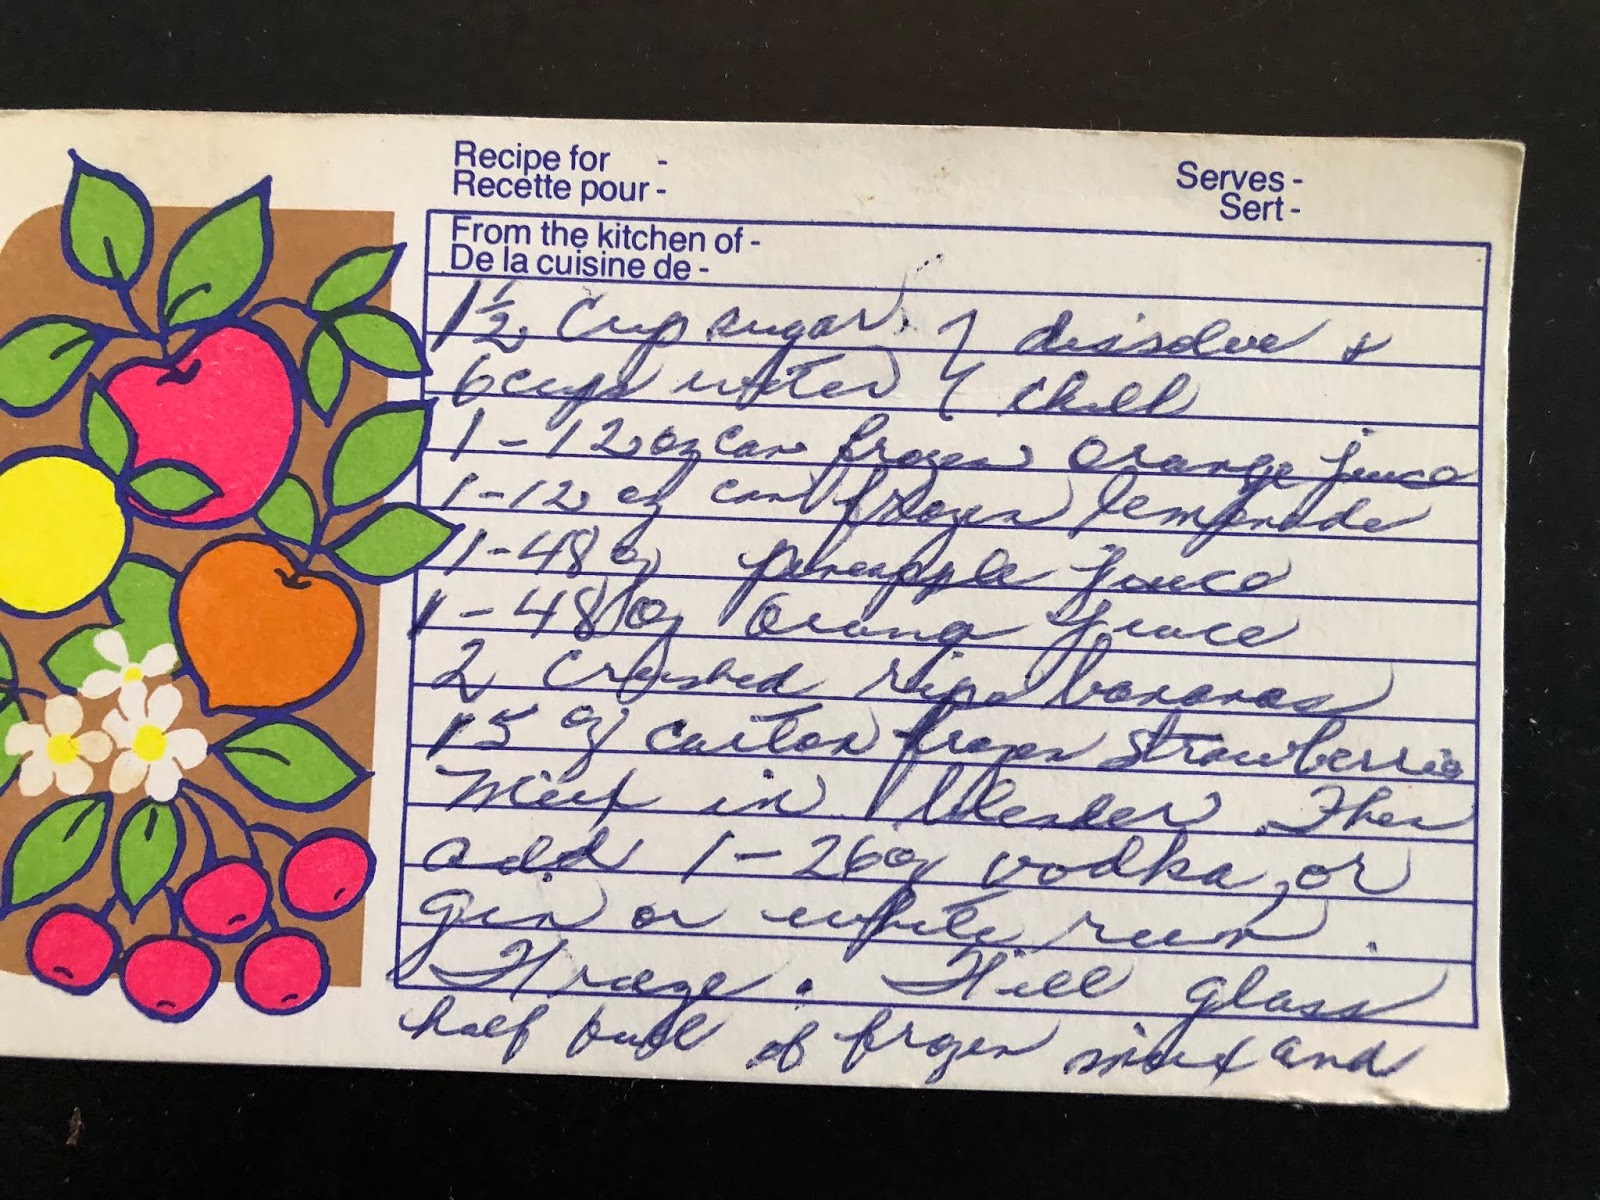 Recipe for -
Recette pour -
Serves -
Sert -
From the kitchen of -
De la cuisine de -
1½ Cup sugar } dissolve &
6 cups water } chill
1-12 oz can frozen orange juice
1-12 oz can frozen lemonade
1-48 oz pineapple juice
1-48 oz Orange juice
2 crushed ripe bananas
15 oz carton frozen strawberries
Mix in blender. Then
add 1-26 oz vodka, or
gin or white rum.
Freeze. Fill glass
half full of frozen mix and